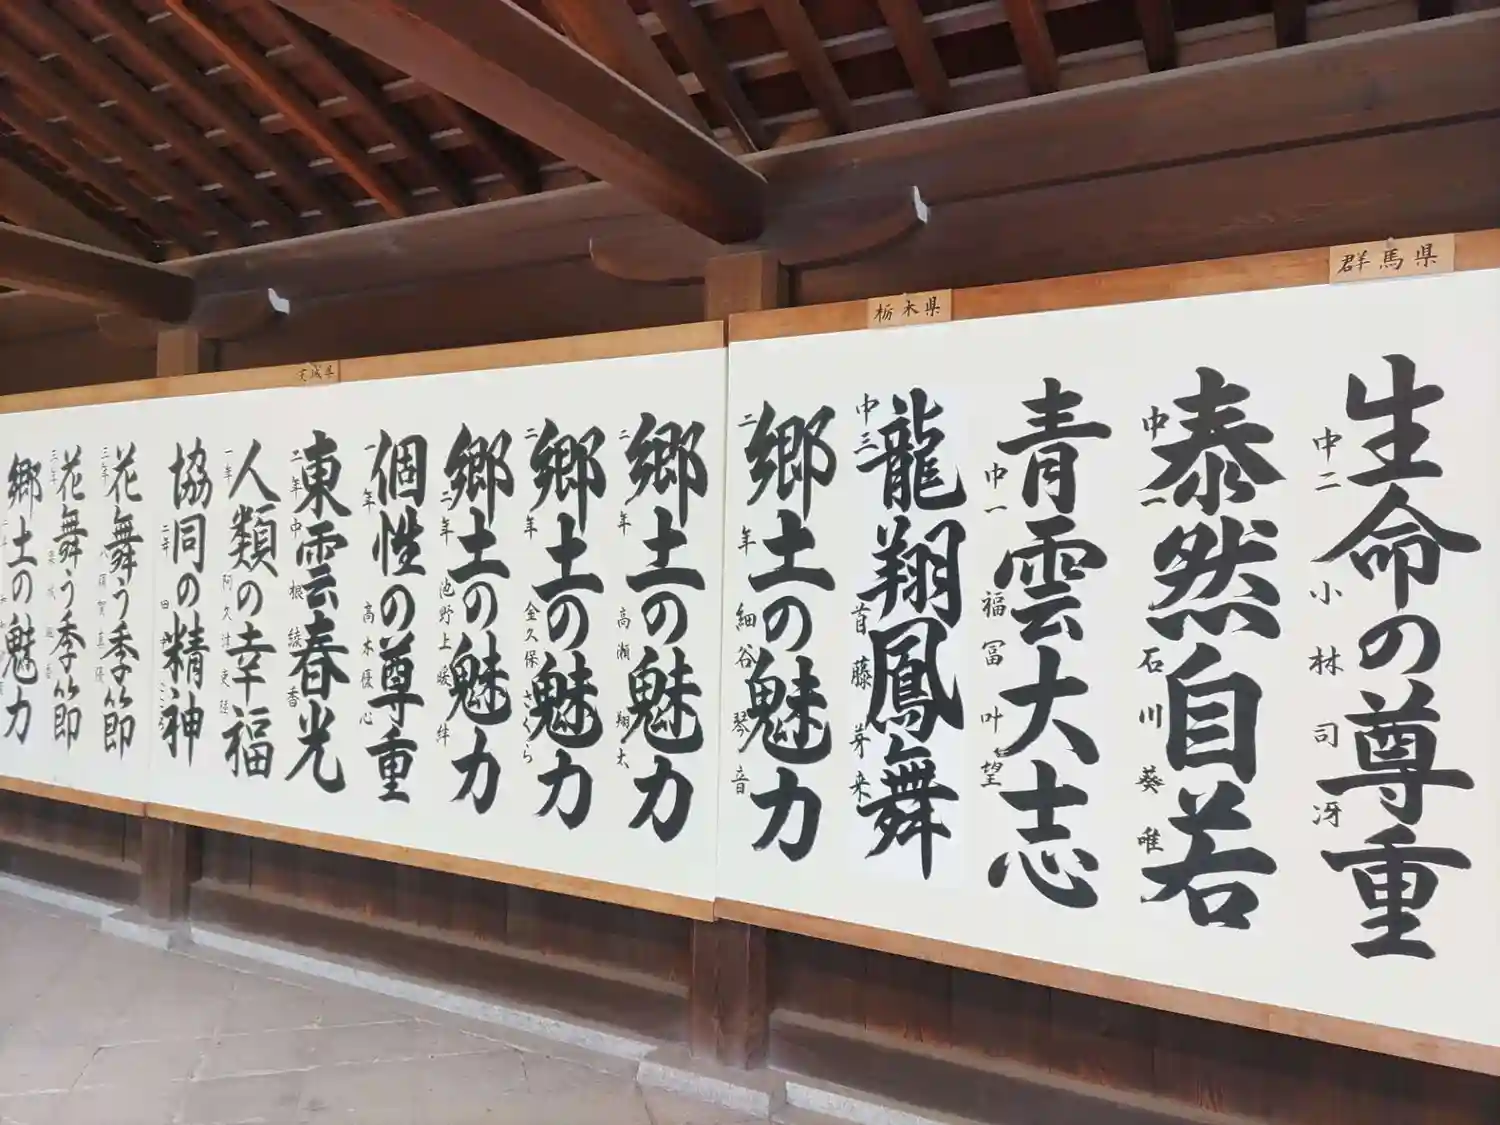 群馬県
生命の尊重
中二 小林司冴
泰然自若
中一 石川葵唯
栃木県
青雲大志
中一 福冨叶望
龍翔鳳舞
中三 首藤芽来
郷土の魅力
二年 細谷琴音
郷土の魅力
二年 高瀬翔太
郷土の魅力
二年 金久保さくら
郷土の魅力
二年 池野上暖絆
個性の尊重
一年 高木優心
茨城県
東雲春光
二年 中根綾香
人類の幸福
一年 阿久津
協同の精神
二年
花舞う季節
三年
花舞う季節
三年
郷土の魅力